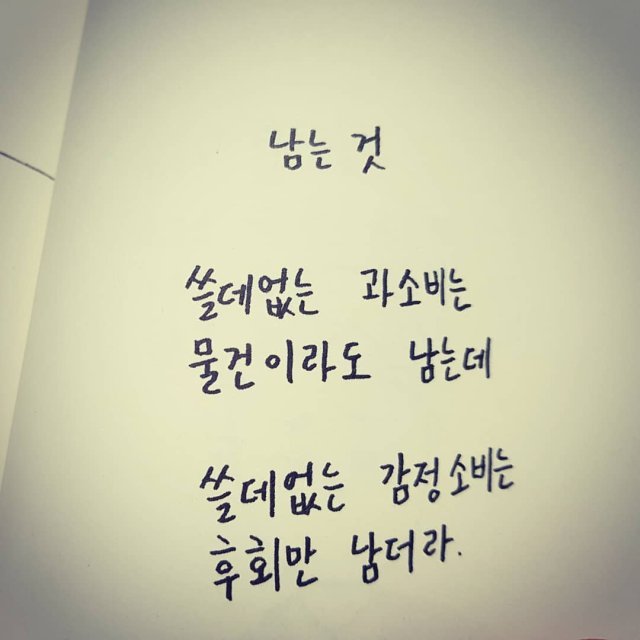 남는 것
쓸데없는 과소비는
물건이라도 남는데
쓸데없는 감정소비는
후회만 남더라.